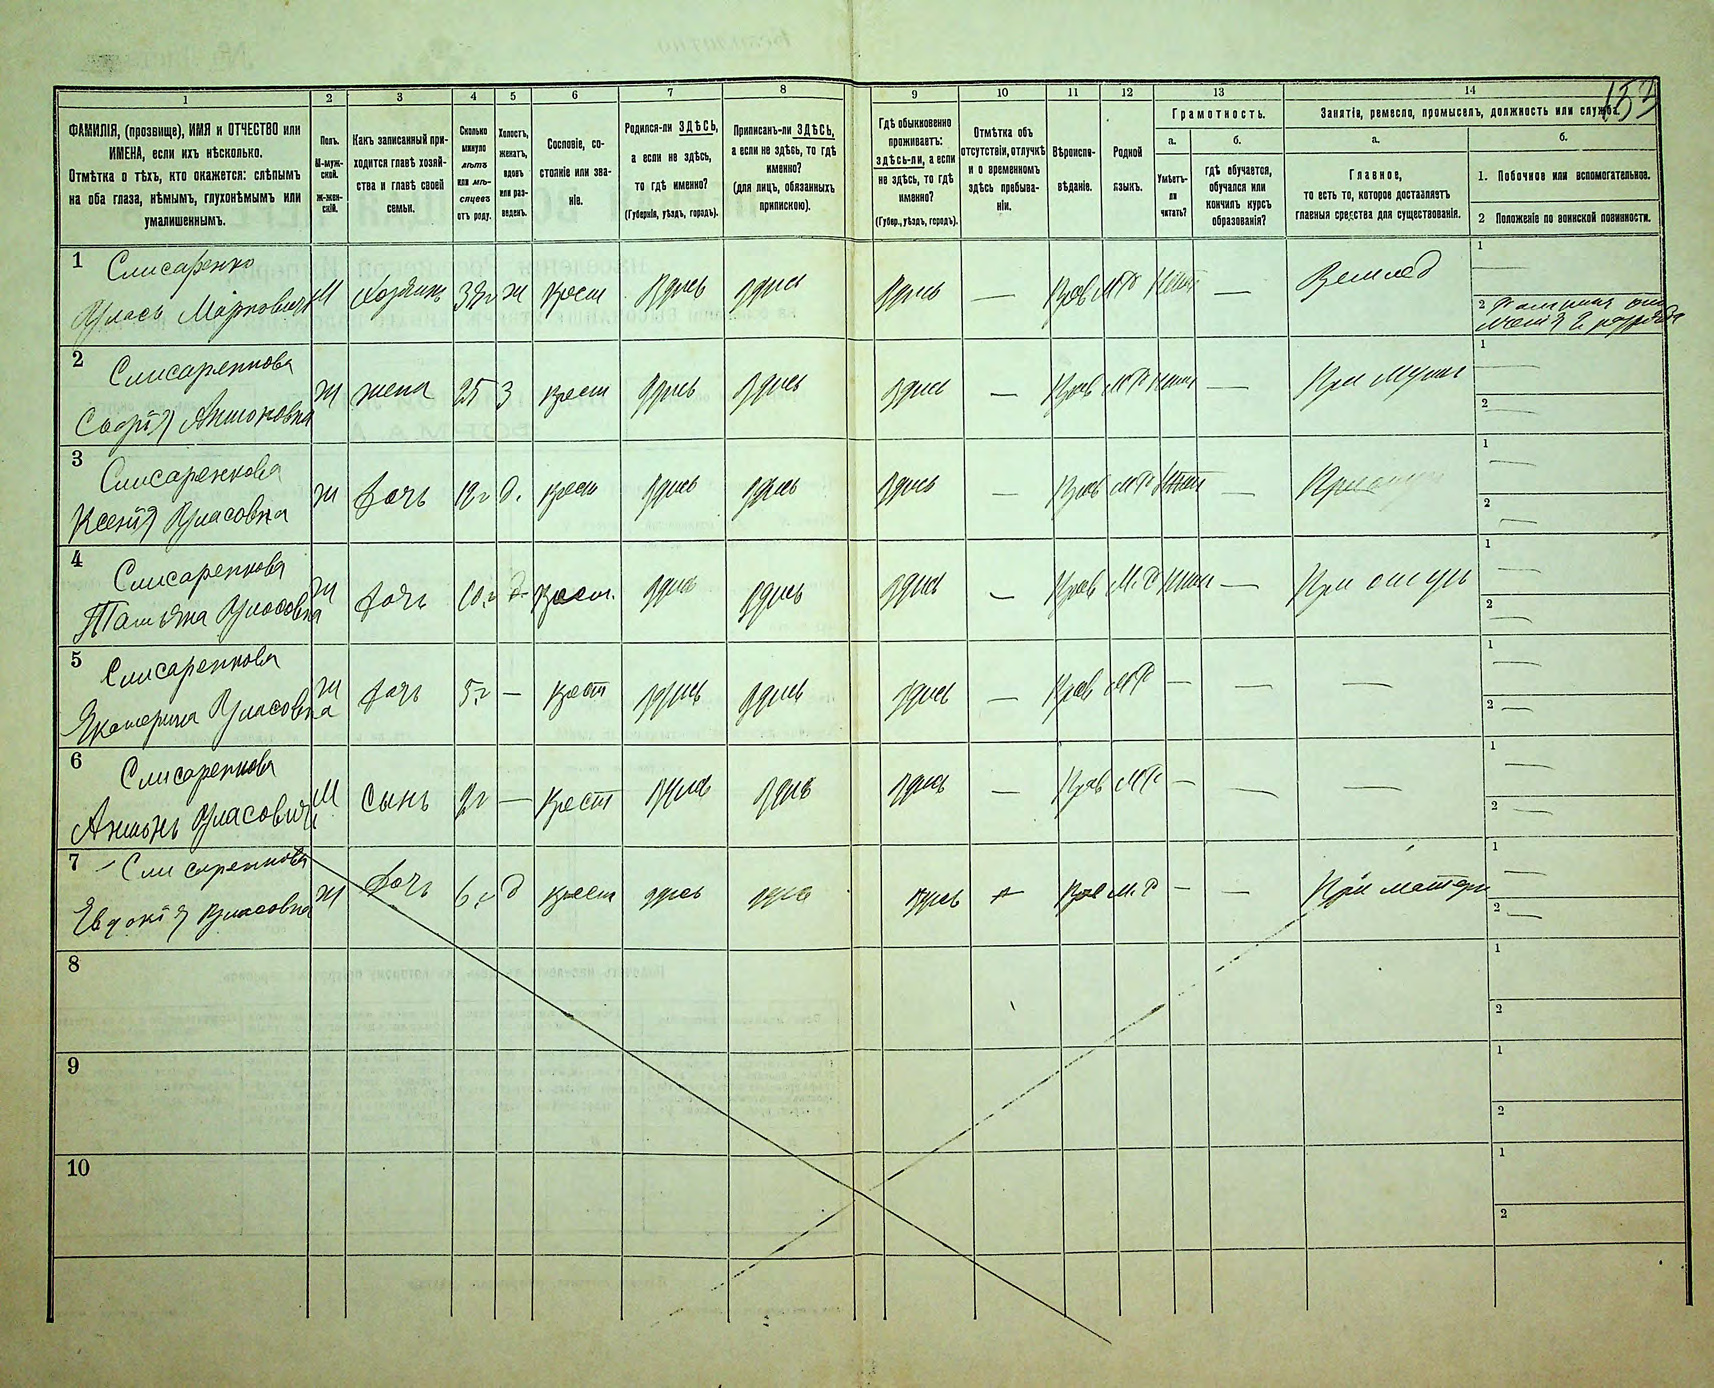 153
1 2 3 4 5 6 7 8 9 10 11 12 13 14
ФАМИЛІЯ, (прозвище), ИМЯ и ОТЧЕСТВО или
ИМЕНА, если ихъ нѣсколько.
Отмѣтка о тѣхъ, кто окажется: слѣпымъ
на оба глаза, нѣмымъ, глухонѣмымъ или
умалишеннымъ.
Полъ.
М-муж-
ской.
ж-жен-
скій.
Какъ записанный при-
ходится главѣ хозяй-
ства и главѣ своей
семьи.
Сколько
минуло
лѣтъ
или мѣ-
сяцевъ
отъ роду.
Холостъ,
женатъ,
вдовъ
или раз-
веденъ.
Сословіе, со-
стояніе или зва-
ніе.
Родился-ли ЗДѢСЬ,
а если не здѣсь,
то гдѣ именно?
(Губернія, уѣздъ, городъ).
Приписанъ-ли ЗДѢСЬ,
а если не здѣсь, то гдѣ
именно?
(для лицъ, обязанныхъ
припискою).
Гдѣ обыкновенно
проживаетъ:
здѣсь-ли, а если
не здѣсь, то гдѣ
именно?
(Губер., уѣздъ, городъ).
Отмѣтка объ
отсутствіи, отлучкѣ
и о временномъ
здѣсь пребыва-
ніи.
Вѣроиспо-
вѣданіе.
Родной
языкъ.
Грамотность.
а.
Умѣетъ-
ли
читать?
б.
гдѣ обучается,
обучался или
кончилъ курсъ
образованія?
Занятія, ремесло, промыселъ, должность или служба.
а.
Главное,
то есть то, которое доставляетъ
главныя средства для существованія.
б.
1. Побочное или вспомогательное.
2 Положеніе по воинской повинности.
1 Слисаренко
Власъ Марковичъ М хозяинъ 38г ж крест здѣсь здѣсь здѣсь — Прав МР Нѣтъ — Землед 1 —
2 Ратникъ опол
ченія 2 разряда
2 Слисаренкова
Софія Антоновна Ж жена 25 З крест здѣсь здѣсь здѣсь — Прав МР Нѣтъ — При мужѣ 1 —
2 —
3 Слисаренкова
Ксенія Власовна Ж дочь 12г д. крест здѣсь здѣсь здѣсь — Прав МР Нѣтъ — При отцѣ 1 —
2 —
4 Слисаренкова
Татьяна Власовна Ж дочь 10.г д. крест. здѣсь здѣсь здѣсь — Прав М.Р Нѣтъ — При отцѣ 1 —
2 —
5 Слисаренкова
Екатерина Власовна Ж дочь 5.г — крест здѣсь здѣсь здѣсь — Прав МР — — — 1 —
2 —
6 Слисаренков
Антонъ Власович М сынъ 2г — крест здѣсь здѣсь здѣсь — Прав МР — — — 1 —
2 —
7 Слисаренкова
Евдокія Власовна Ж дочь 6.г д крест здѣсь здѣсь здѣсь — Прав М.Р — — При матери 1 —
2 —
8 1
2
9 1
2
10 1
2